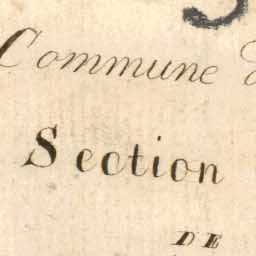 Commune
Section
DE